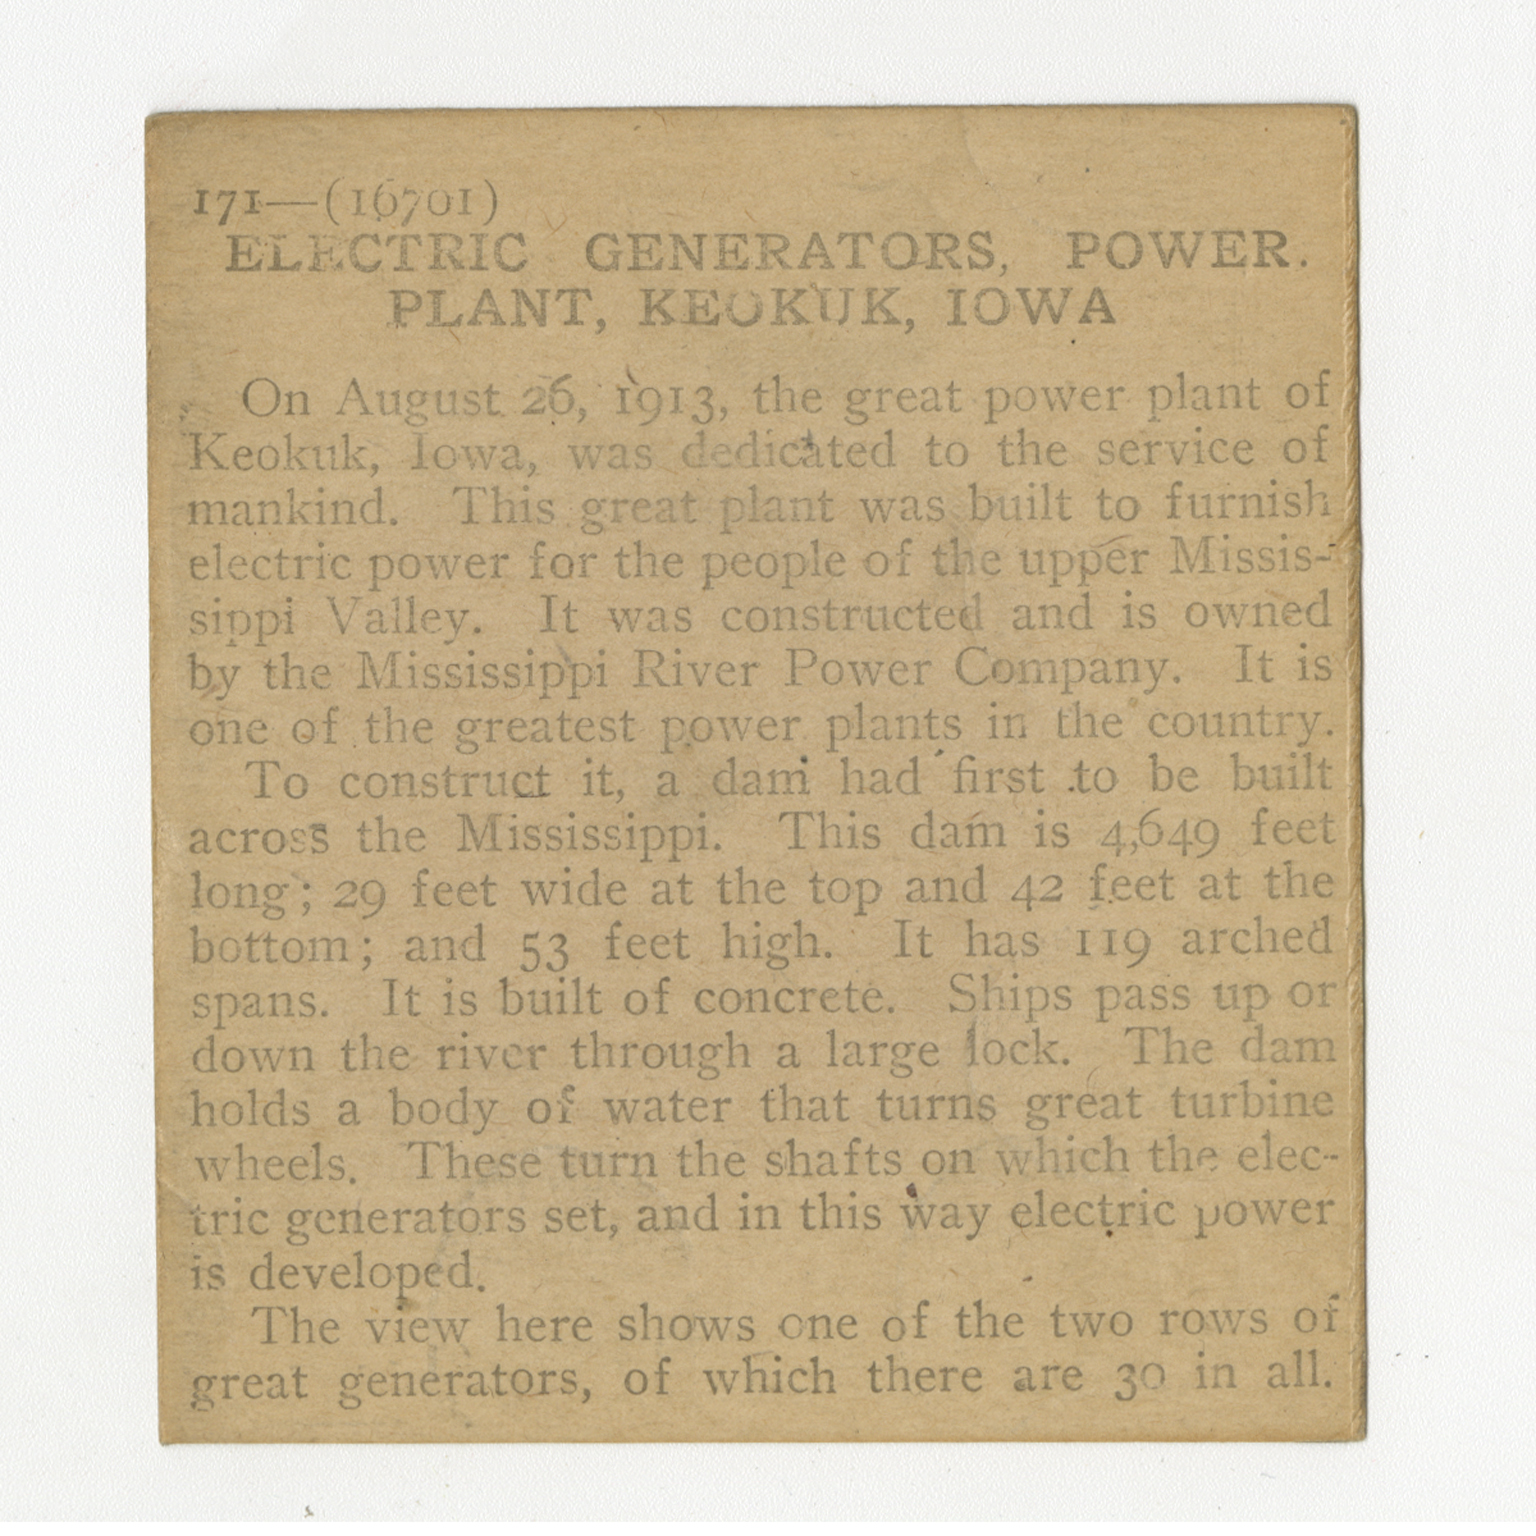 171—(16701)
ELECTRIC GENERATORS, POWER.
PLANT, KEOKUK, IOWA
On August 26, 1913, the great power plant of
Keokuk, Iowa, was dedicated to the service of
mankind. This great plant was built to furnish
electric power for the people of the upper Missis-
sippi Valley. It was constructed and is owned
by the Mississippi River Power Company. It is
one of the greatest power plants in the country.
To construct it, a dam had first to be built
across the Mississippi. This dam is 4,649 feet
long; 29 feet wide at the top and 42 feet at the
bottom; and 53 feet high. It has 119 arched
spans. It is built of concrete. Ships pass up or
down the river through a large lock. The dam
holds a body of water that turns great turbine
wheels. These turn the shafts on which the elec-
tric generators set, and in this way electric power
is developed.
The view here shows one of the two rows of
great generators, of which there are 30 in all.